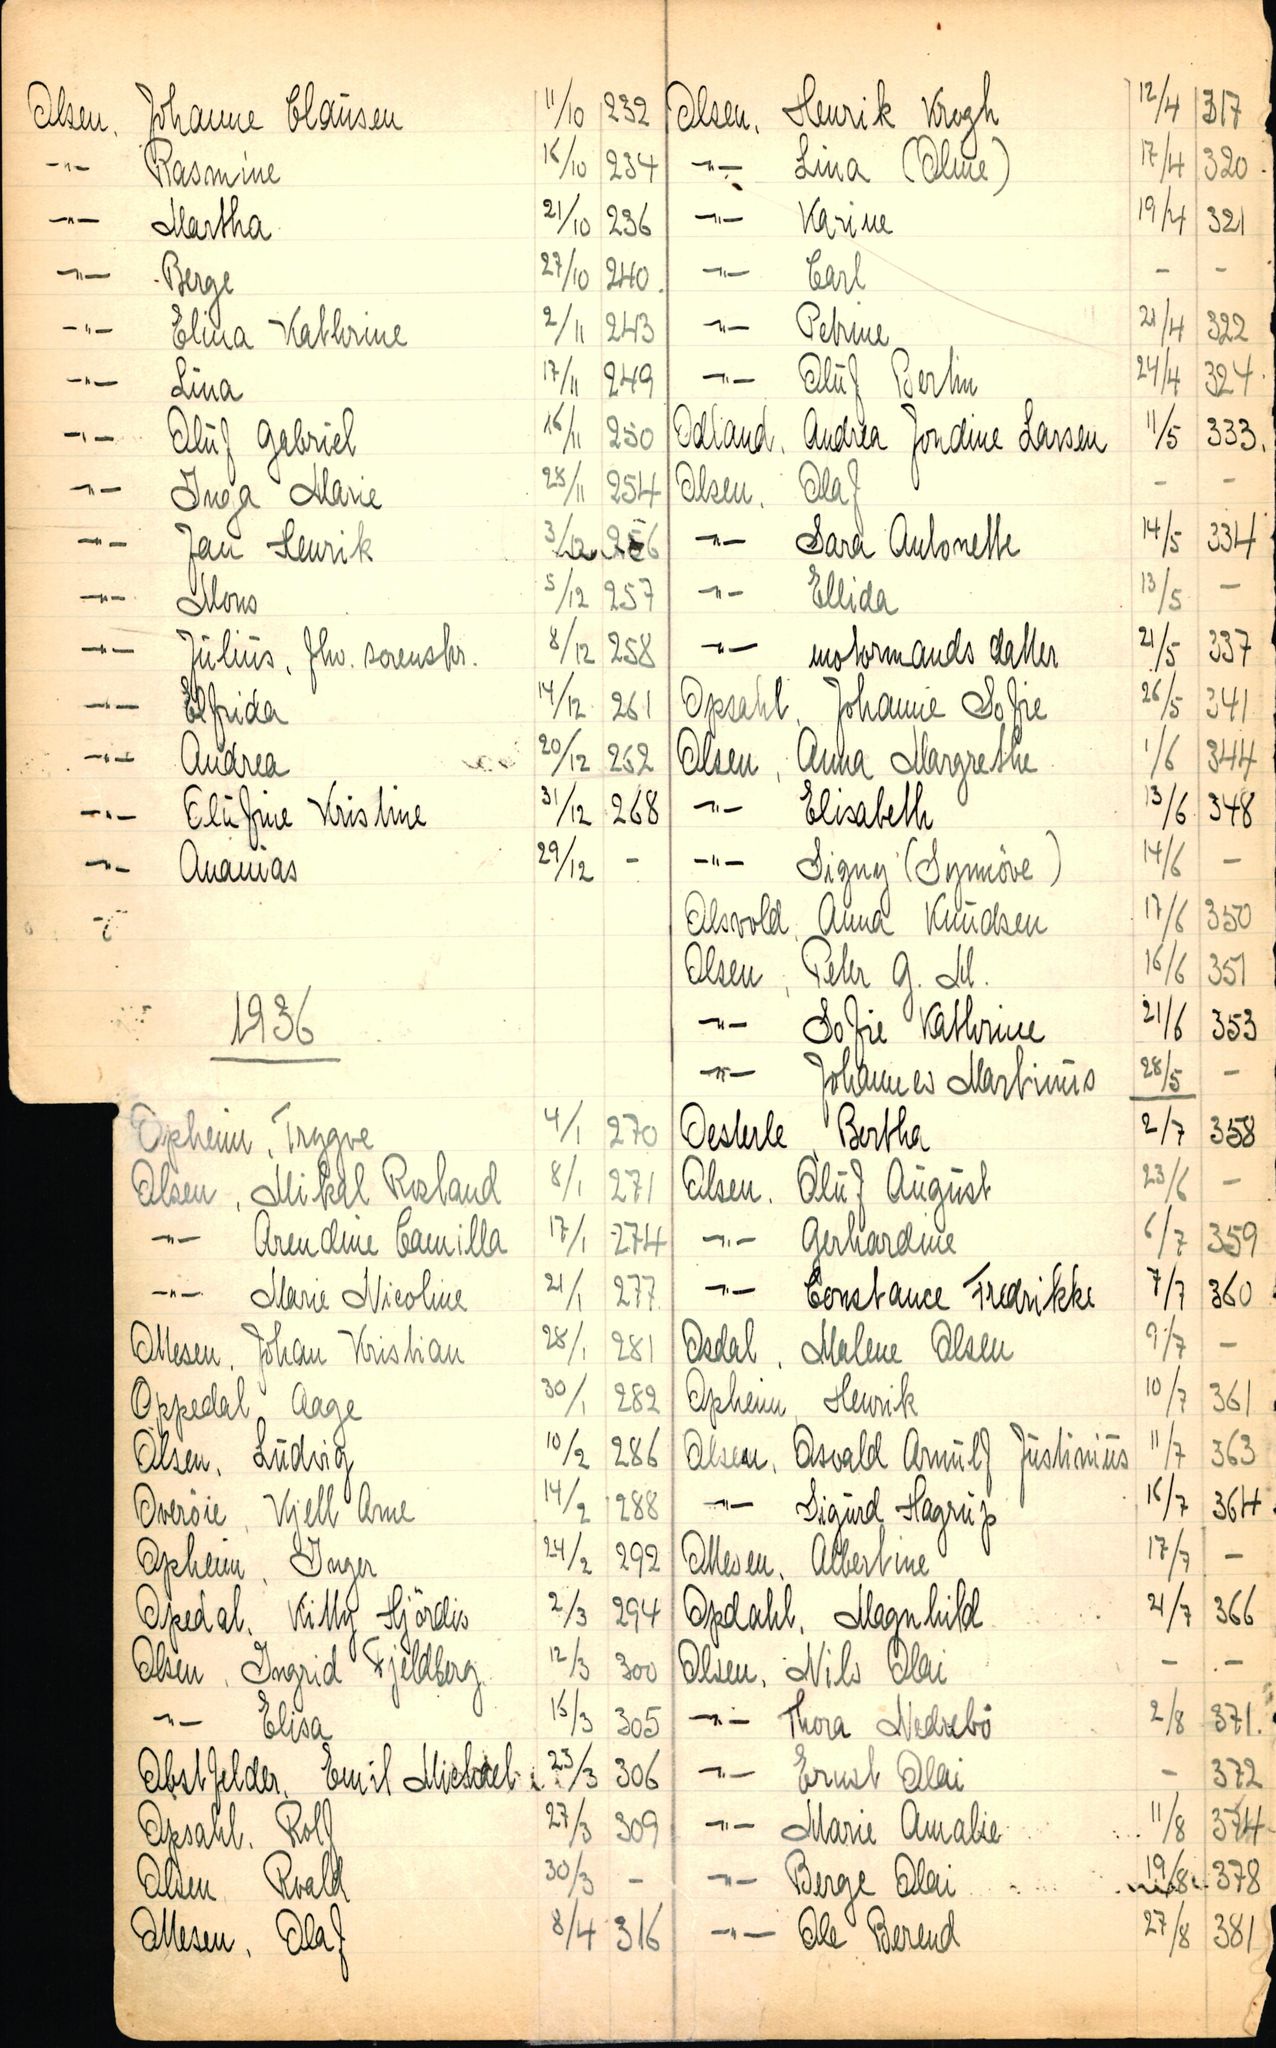 Olsen, Johanne Clausen 11/10 232
-"- Rasmine 16/10 234
-"- Martha 21/10 236
-"- Berge 27/10 240.
-"- Elina Kathrine 2/11 243
-"- Lina 17/11 249
-"- Oluf Gabriel 16/11 250
-"- Inga Marie 28/11 254
-"- Jan Henrik 3/12 256
-"- Mons 5/12 257
-"- Julius, fhv. sorenskr. 8/12 258
-"- Elfrida 14/12 261
-"- Andrea 20/12 262
-"- Olufine Kristine 31/12 268
-"- Ananias 29/12 -
1936
Opheim, Trygve 4/1 270
Olsen, Mikal Rosland 8/1 271
-"- Arendine Camilla 17/1 274
-"- Marie Nicoline 21/1 277
Olsen, Johan Kristian 28/1 281
Oppedal, Aage 30/1 282
Olsen, Ludvig 10/2 286
Overöie, Kjell Arne 14/2 288
Opheim, Inger 24/2 292
Opedal, Kitty Hjördis 2/3 294
Olsen, Ingrid Fjeldberg 12/3 300
-"- Elisa 15/3 305
Obstfelder, Emil Michael 23/3 306
Opsahl, Rolf 27/3 309
Olsen, Roald 30/3 -
Olsen, Olaf 8/4 316
Olsen, Henrik Krogh 12/4 317
-"- Lina (Oline) 17/4 320
-"- Karine 19/4 321
-"- Carl - -
-"- Petrine 21/4 322
-"- Oluf Bertin 24/4 324
Odland, Andrea Jondine Larsen 11/5 333.
Olsen, Olaf - -
-"- Sara Antonette 14/5 334
-"- Ellida 13/5 -
-"- motormands datter 21/5 337
Opsahl, Johanne Sofie 26/5 341
Olsen, Anna Margrethe 1/6 344
-"- Elisabeth 13/6 348
-"- Signy (Synnöve) 14/6 -
Olsvold, Anna Knudsen 17/6 350
Olsen, Peter G. M. 16/6 351
-"- Sofie Kathrine 21/6 353
-"- Johannes Martinus 28/5 -
Oesterle Bertha 2/7 358
Olsen, Oluf August 23/6 -
-"- Gerhardine 6/7 359
-"- Constance Fredrikke 7/7 360
Osdal, Malene Olsen 9/7 -
Opheim, Henrik 10/7 361
Olsen, Osvald Arnulf Justinius 11/7 363
-"- Sigurd Hagrup 16/7 364
Olsen, Albertine 17/7 -
Opdahl, Magnhild 21/7 366
Olsen, Nils Olai - -
-"- Thora Nedrebö 2/8 371.
-"- Ernst Olai - 372
-"- Marie Amalie 11/8 374
-"- Berge Olai 19/8 378
-"- Ole Berend 27/8 381